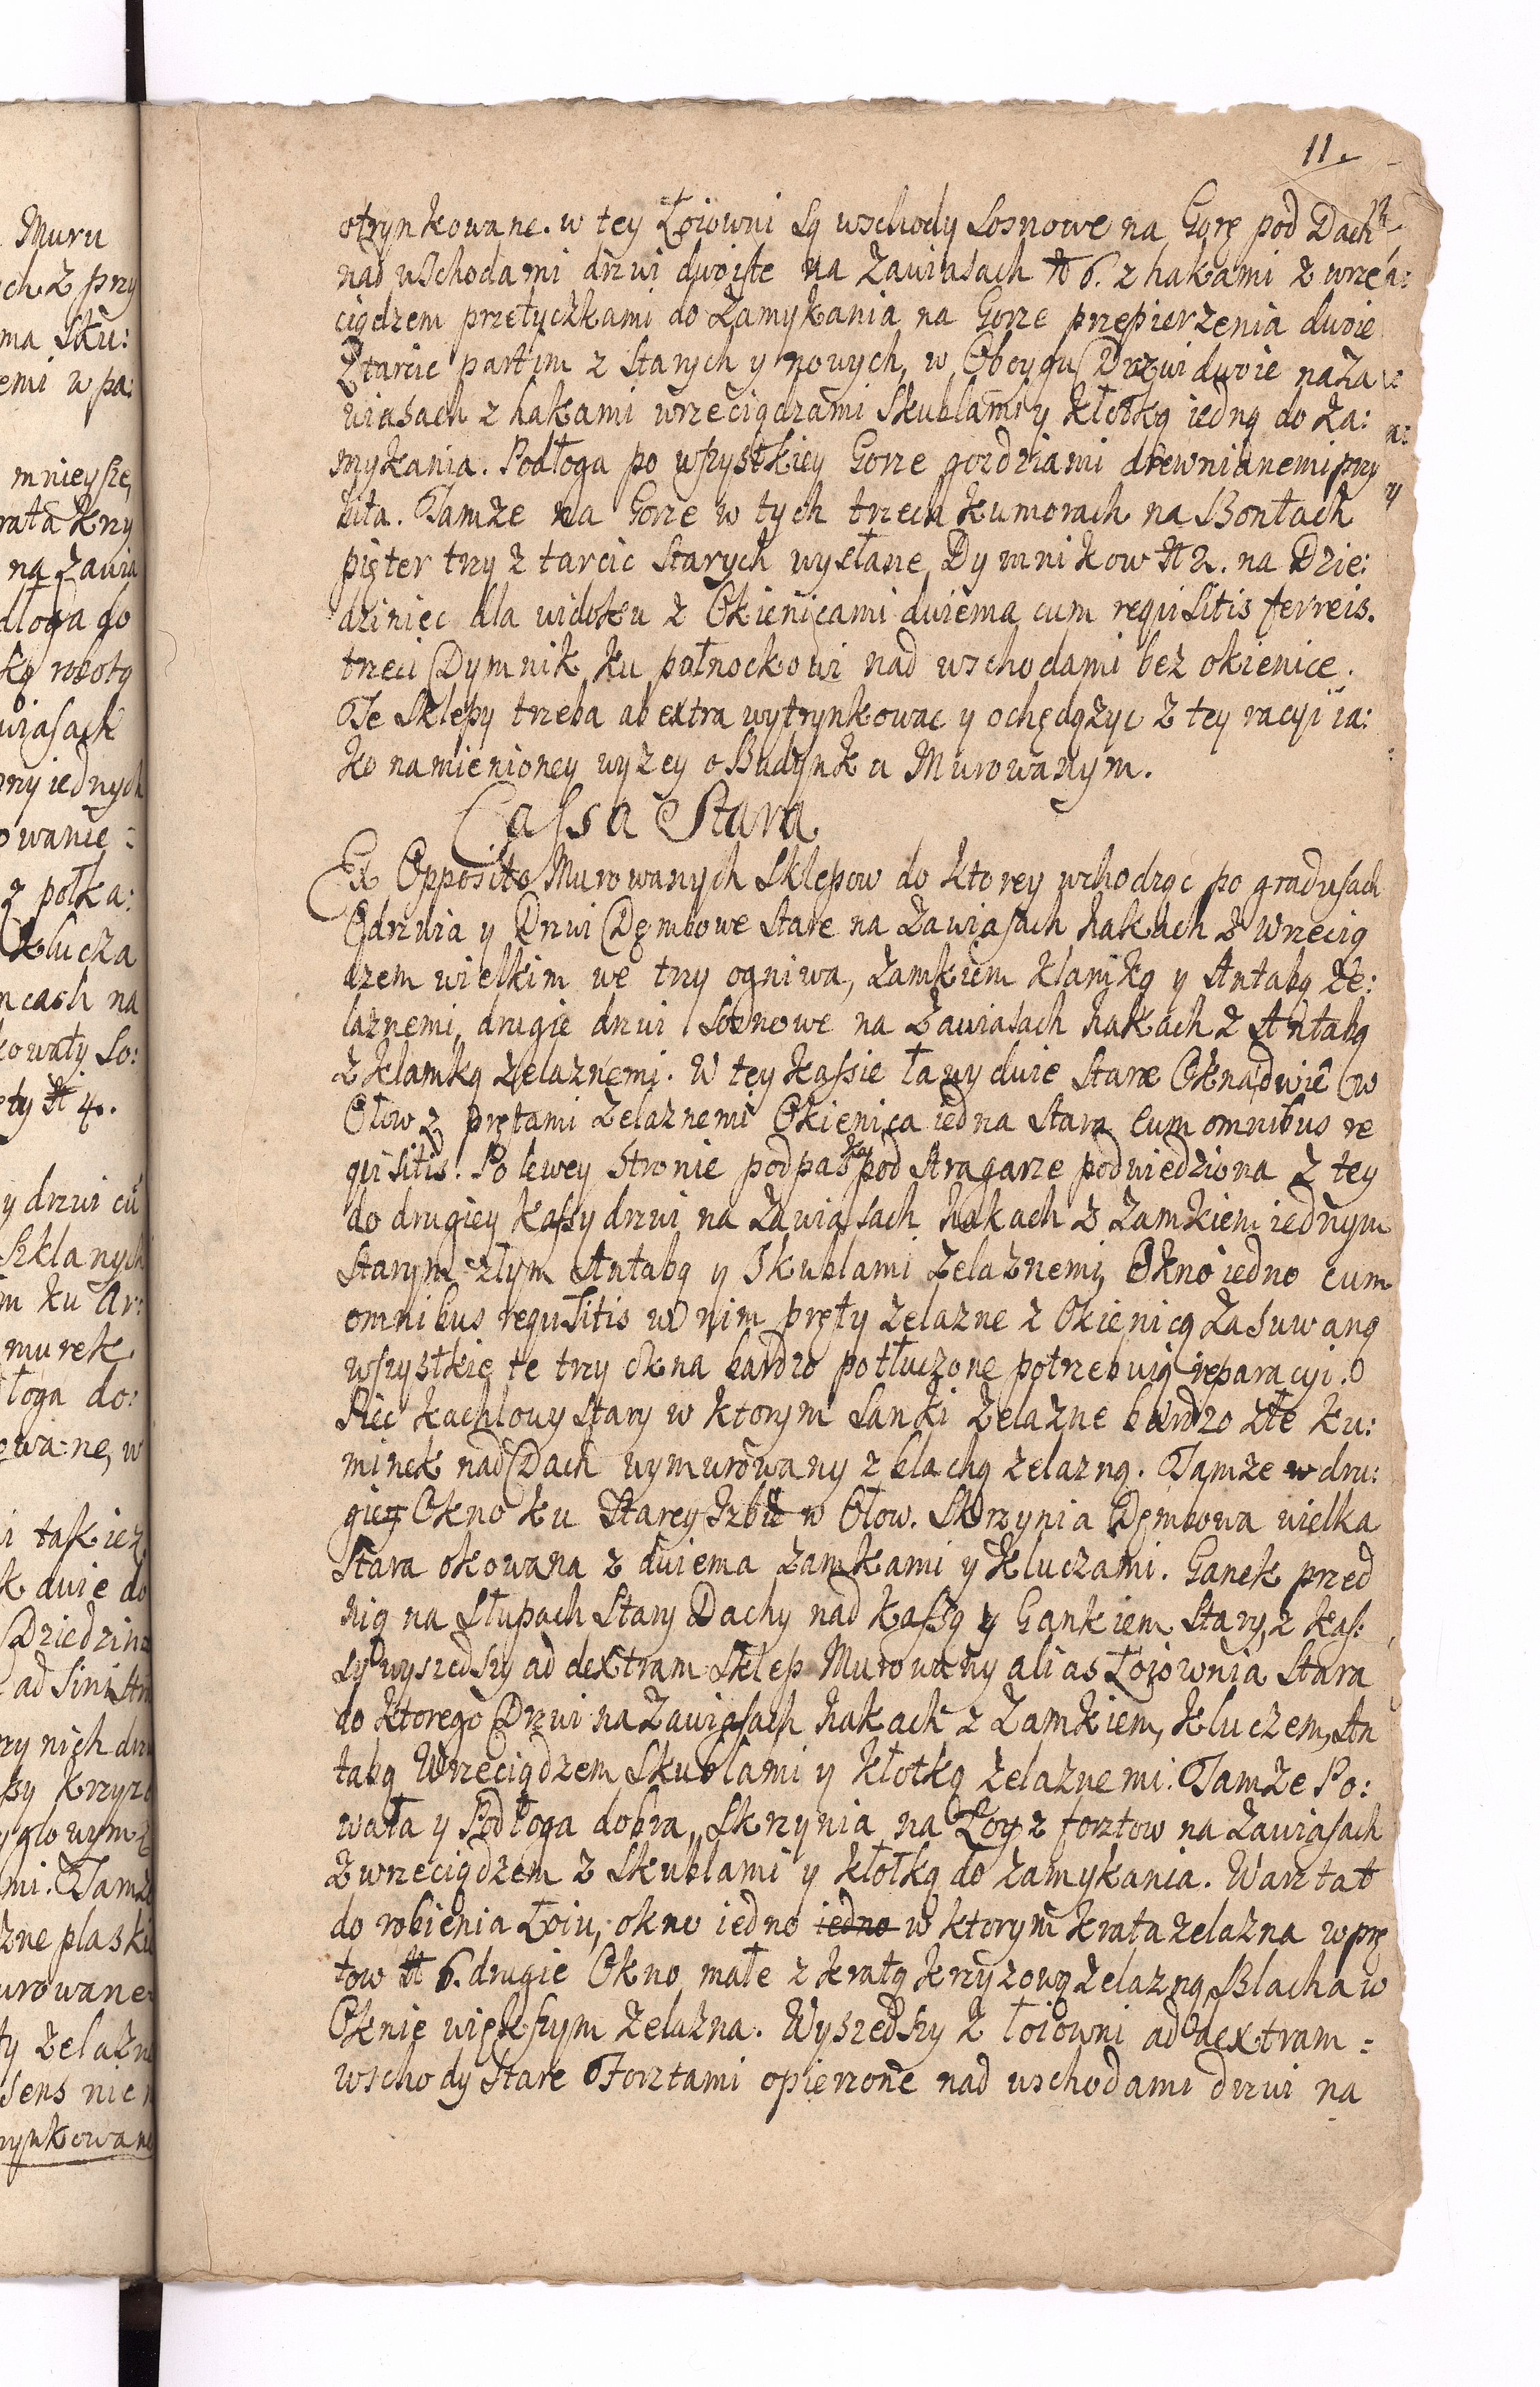 Muru
ch z przy
ma Sku:
emi w pa:
mnieysze,
rata krzy
na Zawia
dłoga do
ką robotą
wiasach
ony iednych
owanie:
z połka:
klucza
ncach na
kowaty So:
ty # 4.
y drzwi cū
Szklanych
m ku Ar:
murek
toga do:
owane, w
i takież
k dwie do
Dziedzinc
ad Sinistr
zy nich drz
psy krzyżo
głowym z
mi. Tamże
zne płaskie
urowane
ty żelazne
sens nie
rynkowane
11.
otrynkowane. w tey Łoiowni Są wschody Sosnowe na Gorę pod Dach
nad wschodami drzwi dwoiste na Zawiasach # 6. z hakami z wrze
ciądzem przetyczkami do Zamykania na Gorze przepierzenia dwie
Z tarcic partim z Starych y nowych, w Oboygu Drzwi dwoie na Za
wiasach z hakami wrzeciądzami Skublami y kłotką iedną do Za:
mykania. Podłoga po wszystkiey Gorze gozdziami drewnianemi przy
bita. Tamże na Gorze w tych trzech kumorach na Bontach
pięter trzy z tarcic Starych wysłane, Dymnikow # 2. na Dzie:
dziniec dla widoku z Okienicami dwiema cum requisitis ferreis.
trzeci Dymnik ku pułnockowi nad wschodami bez okienice.
Te Sklepy trzeba ab extra wytrynkowac y ochędożyc z tey racyi ia:
ko namienioney wyzey o Budynku Murowanym.
Cassa Stara
Ex Opposito Murowanych Sklepow do ktorey wchodząc po gradusach
Odrzwia y Drzwi Dębowe Stare na Zawiasach hakach z Wrzecią
dzem wielkim we trzy ogniwa, Zamkiem klamką y Antabą Że:
laznemi, drugie drzwi Sosnowe na Zawiasach hakach z Antabą
z klamką żelaznemi. W tey kassie ławy dwie Stare Okna dwie w
Ołow z prętami żelaznemi Okienica iedna Stara Cum omnibus re
quisitis. Po lewey Stronie podpaska pod Stragarze podwiedziona z tey
do drugiey kassy drzwi na Zawiasach hakach z Zamkiem iednym
Starym złym Antabą y Skublami żelaznemi, Okno iedno cum
omnibus requisitis w nim pręty żelazne z Okienicą Zasuwaną
wszystkie te trzy okna bardzo potłuczone potrzebuią reparacyi.
Piec kachlowy Stary w ktorym Sanki żelazne bardzo złe ku:
minek nad Dach wymurowany z blachą żelazną. Tamże w dru:
giey Okno ku Starey Izbie w Ołow. Skrzynia Dębowa wielka
Stara okowana z dwiema zamkami y kluczami. Ganek przed
nią na Słupach Stary Dachy nad kassą y Gankiem Stary, z kas:
sy wyszedszy ad dextram Sklep Murowany alias Łoiownia Stara
do ktorego Drzwi na Zawiasach hakach z Zamkiem, kluczem, An
tabą Wrzeciądzem Skublami y kłotką żelaznemi. Tamże Po:
wała y Podłoga dobra, Skrzynia na Łoy z forztow na Zawiasach
z wrzeciądzem z Skublami y kłotką do zamykania. Warztat
do robienia Łoiu, okno iedno iedno w ktorym krata żelazna w prę
tow # 6. drugie Okno małe z kratą krzyżową żelazną, Blacha w
Oknie większym żelazna. Wyszedszy z łoiowni ad dextram =
wschody Stare Forztami opierzone nad wschodami drzwi na